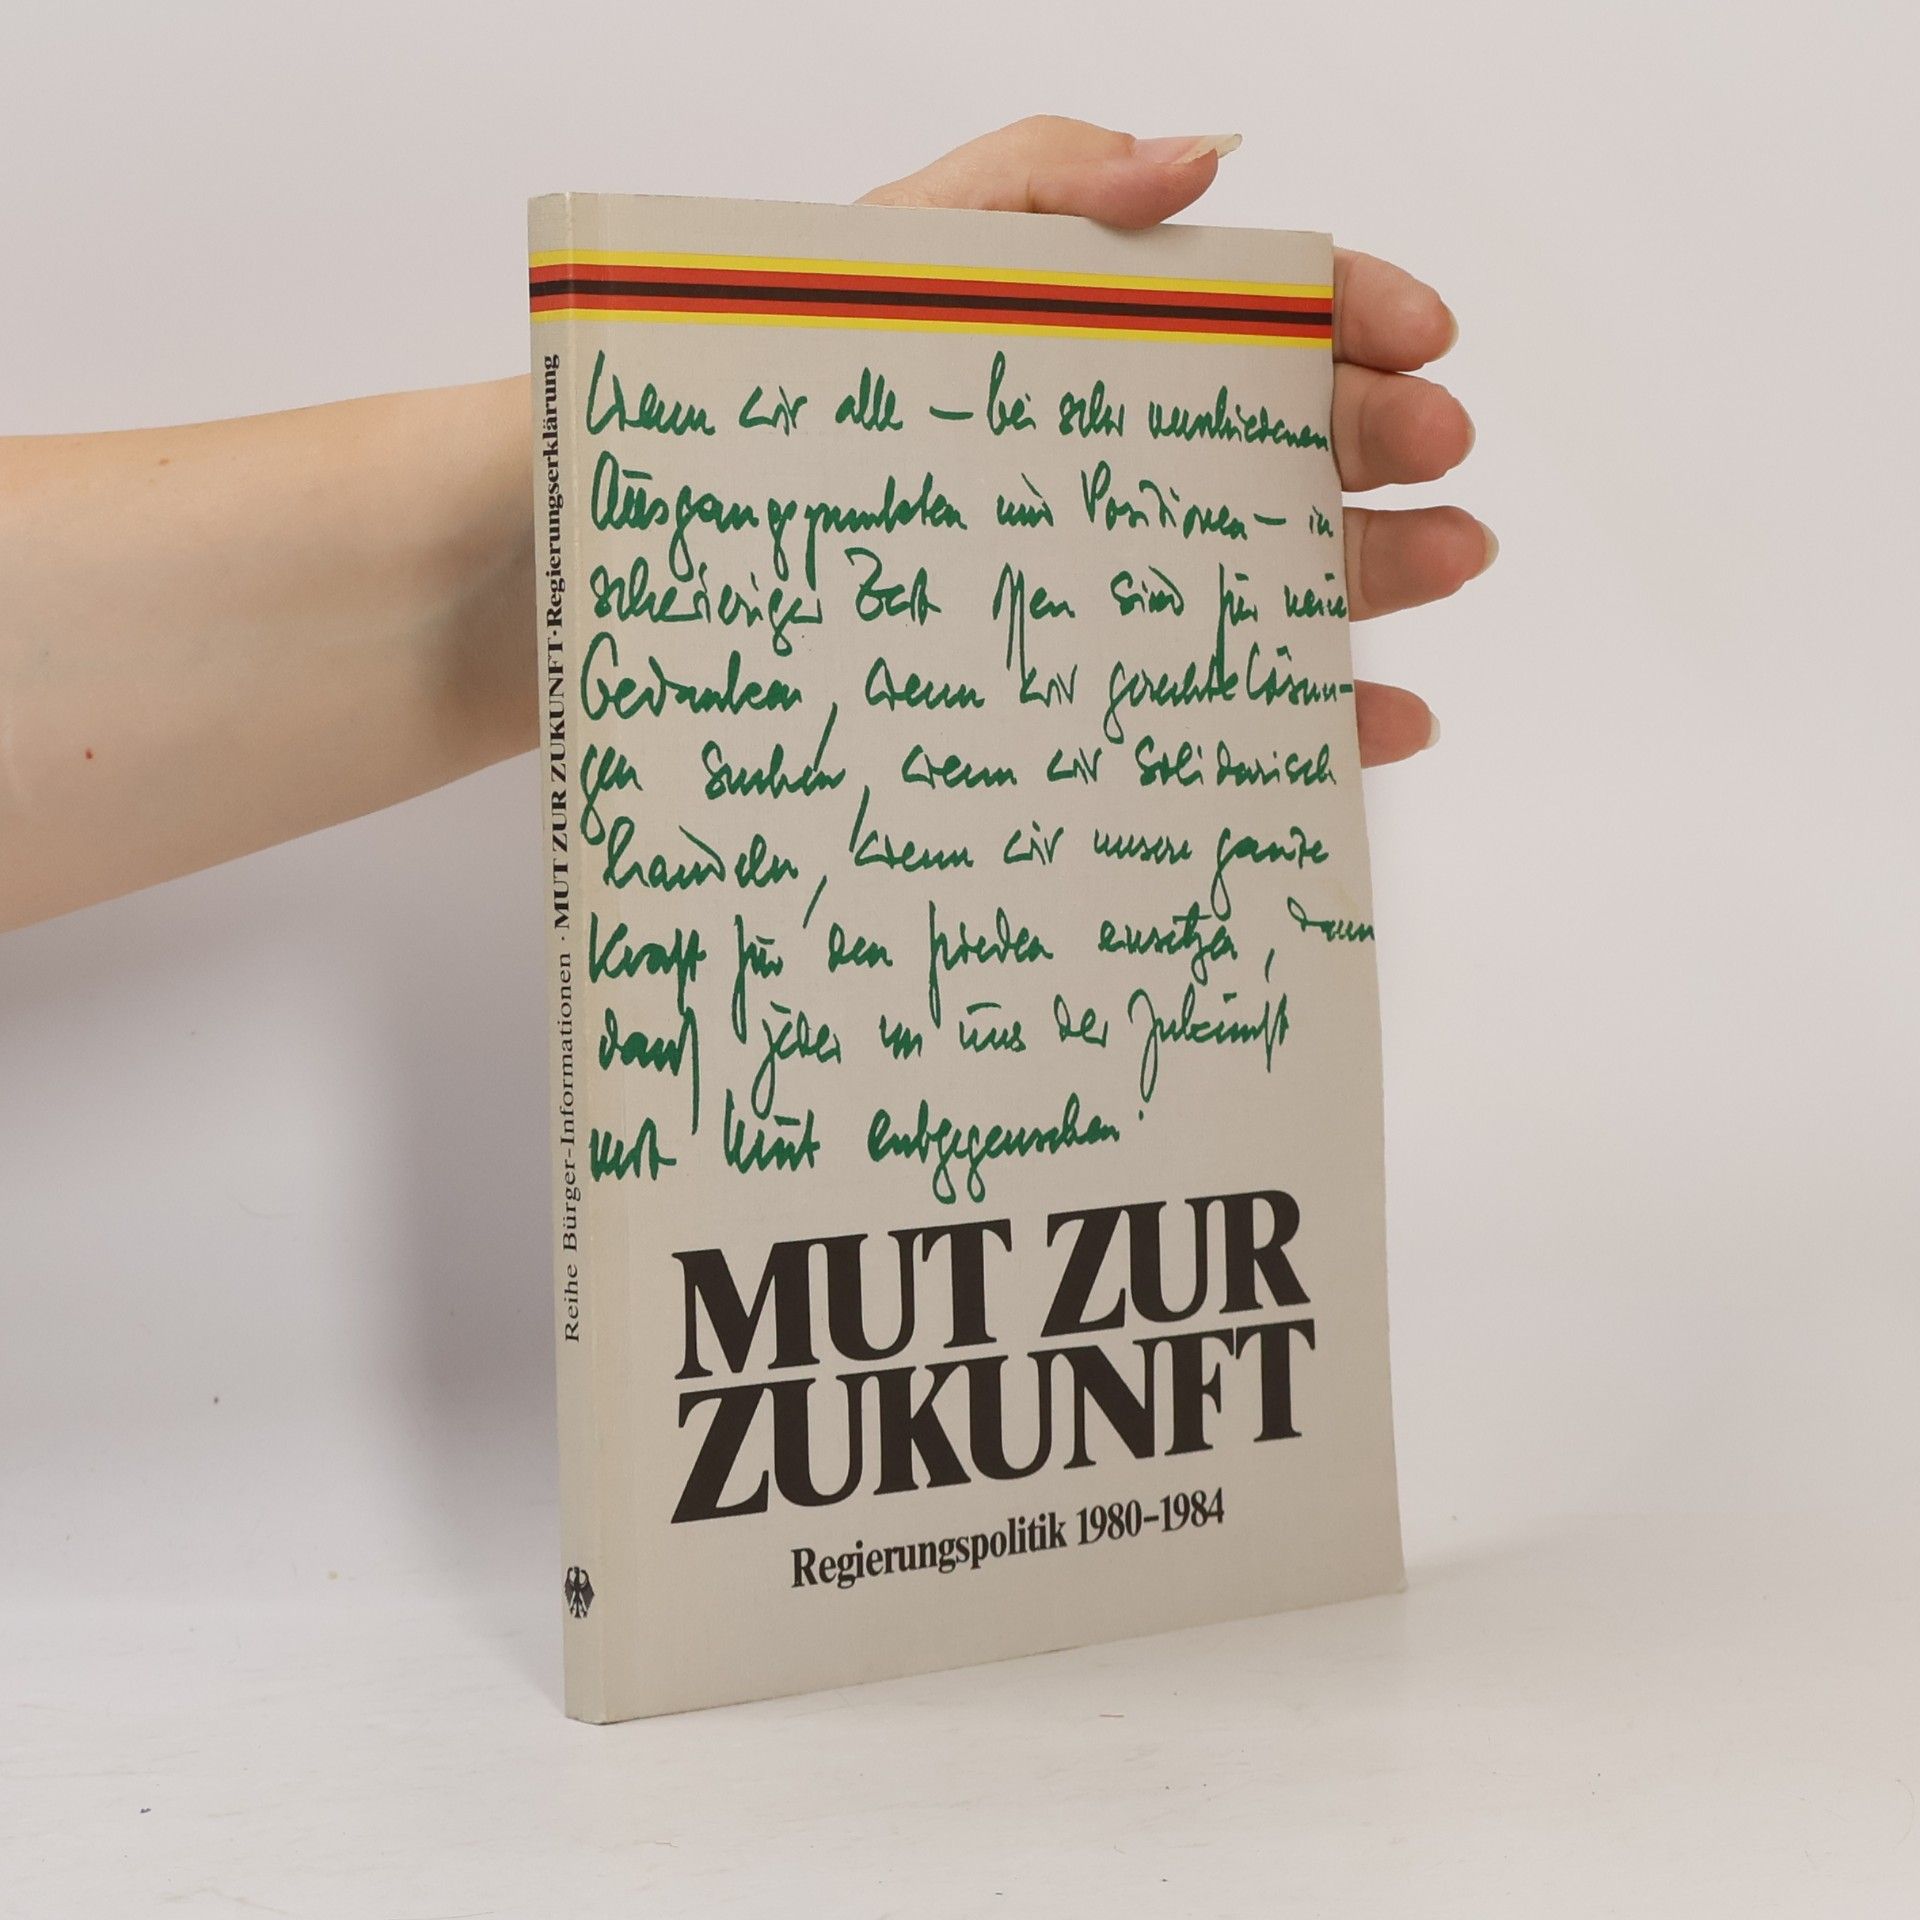 Wenn wir alle – bei sehr verschiedenen
Ausgangspunkten und Positionen – in
schwieriger Zeit offen sind für neue
Gedanken, wenn wir gerechte Lösun-
gen suchen, wenn wir solidarisch
handeln, wenn wir unsere ganze
Kraft für den Frieden einsetzen, dann
darf jeder von uns der Zukunft
mit Mut entgegensehen.
MUT ZUR
ZUKUNFT
Regierungspolitik 1980–1984
Reihe Bürger-Informationen · MUT ZUR ZUKUNFT·Regierungserklärung